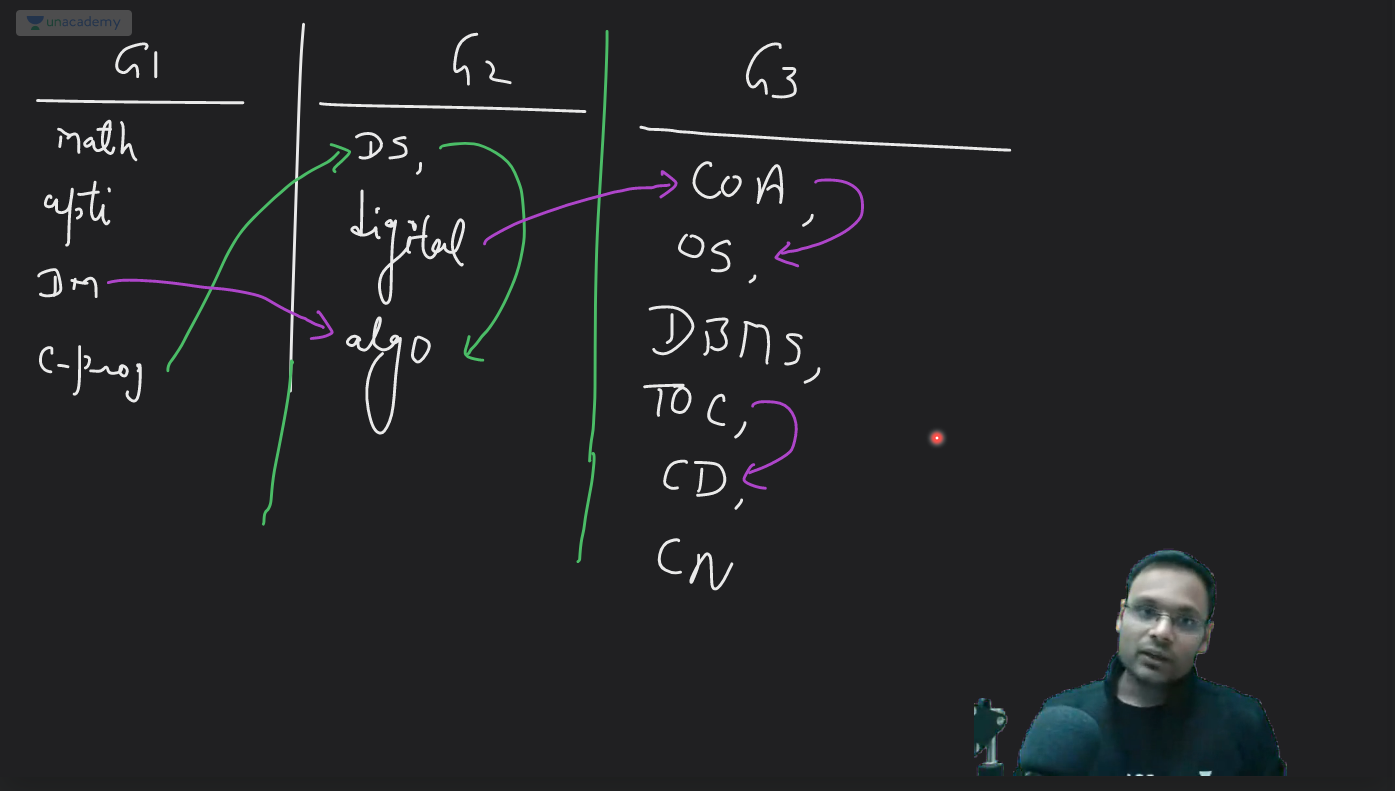 unacademy
G1
math
apti
DM
C-prog
G2
DS,
digital
algo
G3
COA,
OS,
DBMS,
TOC,
CD,
CN